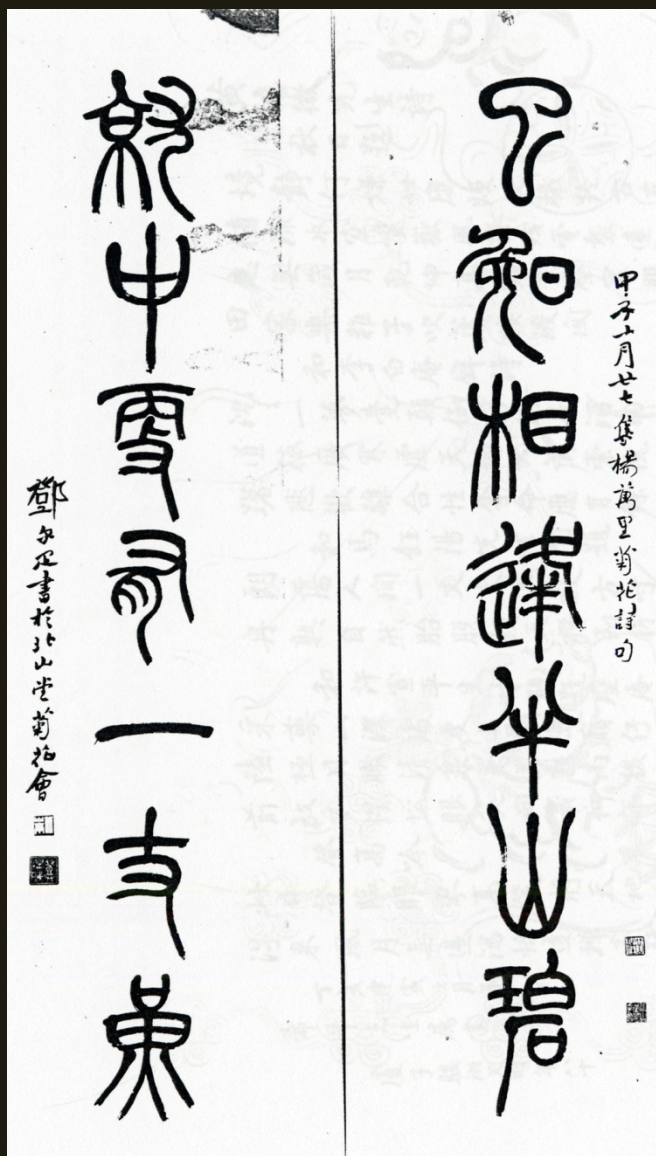 知相半山碧
甲子十月廿七集楊萬里菊花詩句
就中更有一支黃
鄧尔疋書於北山堂菊花會